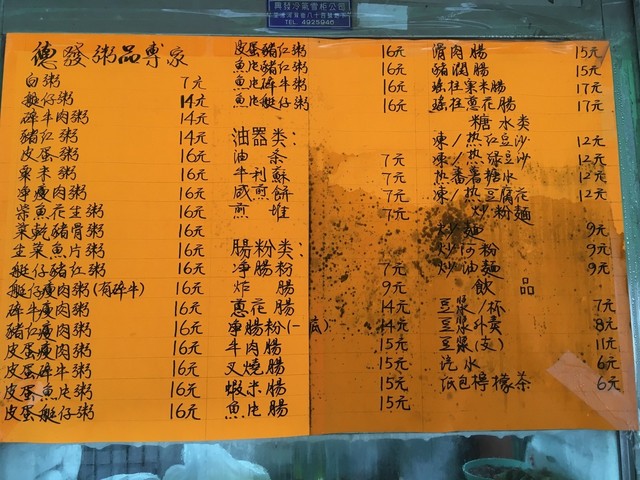 興發冷氣雪柜公司
TEL. 4925946
德發粥品專家
白粥 7元
艇仔粥 14元
碎牛肉粥 14元
豬红粥 14元
皮蛋粥 16元
粟米粥 16元
净瘦肉粥 16元
柴魚花生粥 16元
菜乾豬骨粥 16元
生菜魚片粥 16元
艇仔豬红粥 16元
艇仔瘦肉粥(有碎牛) 16元
碎牛瘦肉粥 16元
豬红瘦肉粥 16元
皮蛋瘦肉粥 16元
皮蛋碎牛粥 16元
皮蛋魚片粥 16元
皮蛋艇仔粥 16元
皮蛋豬红粥 16元
魚片豬红粥 16元
魚片碎牛粥 16元
魚片艇仔粥 16元
油器类:
油条 7元
牛利蘇 7元
咸煎餅 7元
煎堆 7元
腸粉类:
净腸粉 7元
炸腸 9元
蔥花腸 14元
净腸粉(一底) 14元
牛肉腸 15元
叉燒腸 15元
蝦米腸 15元
魚片腸 15元
滑肉腸 15元
豬潤腸 15元
瑤柱粟米腸 17元
瑤柱蔥花腸 17元
糖水类
凍/热红豆沙 12元
凍/热绿豆沙 12元
热番薯糖水 12元
凍/热豆腐花 12元
炒粉麵
炒麵 9元
炒河粉 9元
炒油麵 9元
飲品
豆漿/杯 7元
豆漿外賣 8元
豆漿(支) 11元
汽水 6元
纸包檸檬茶 6元